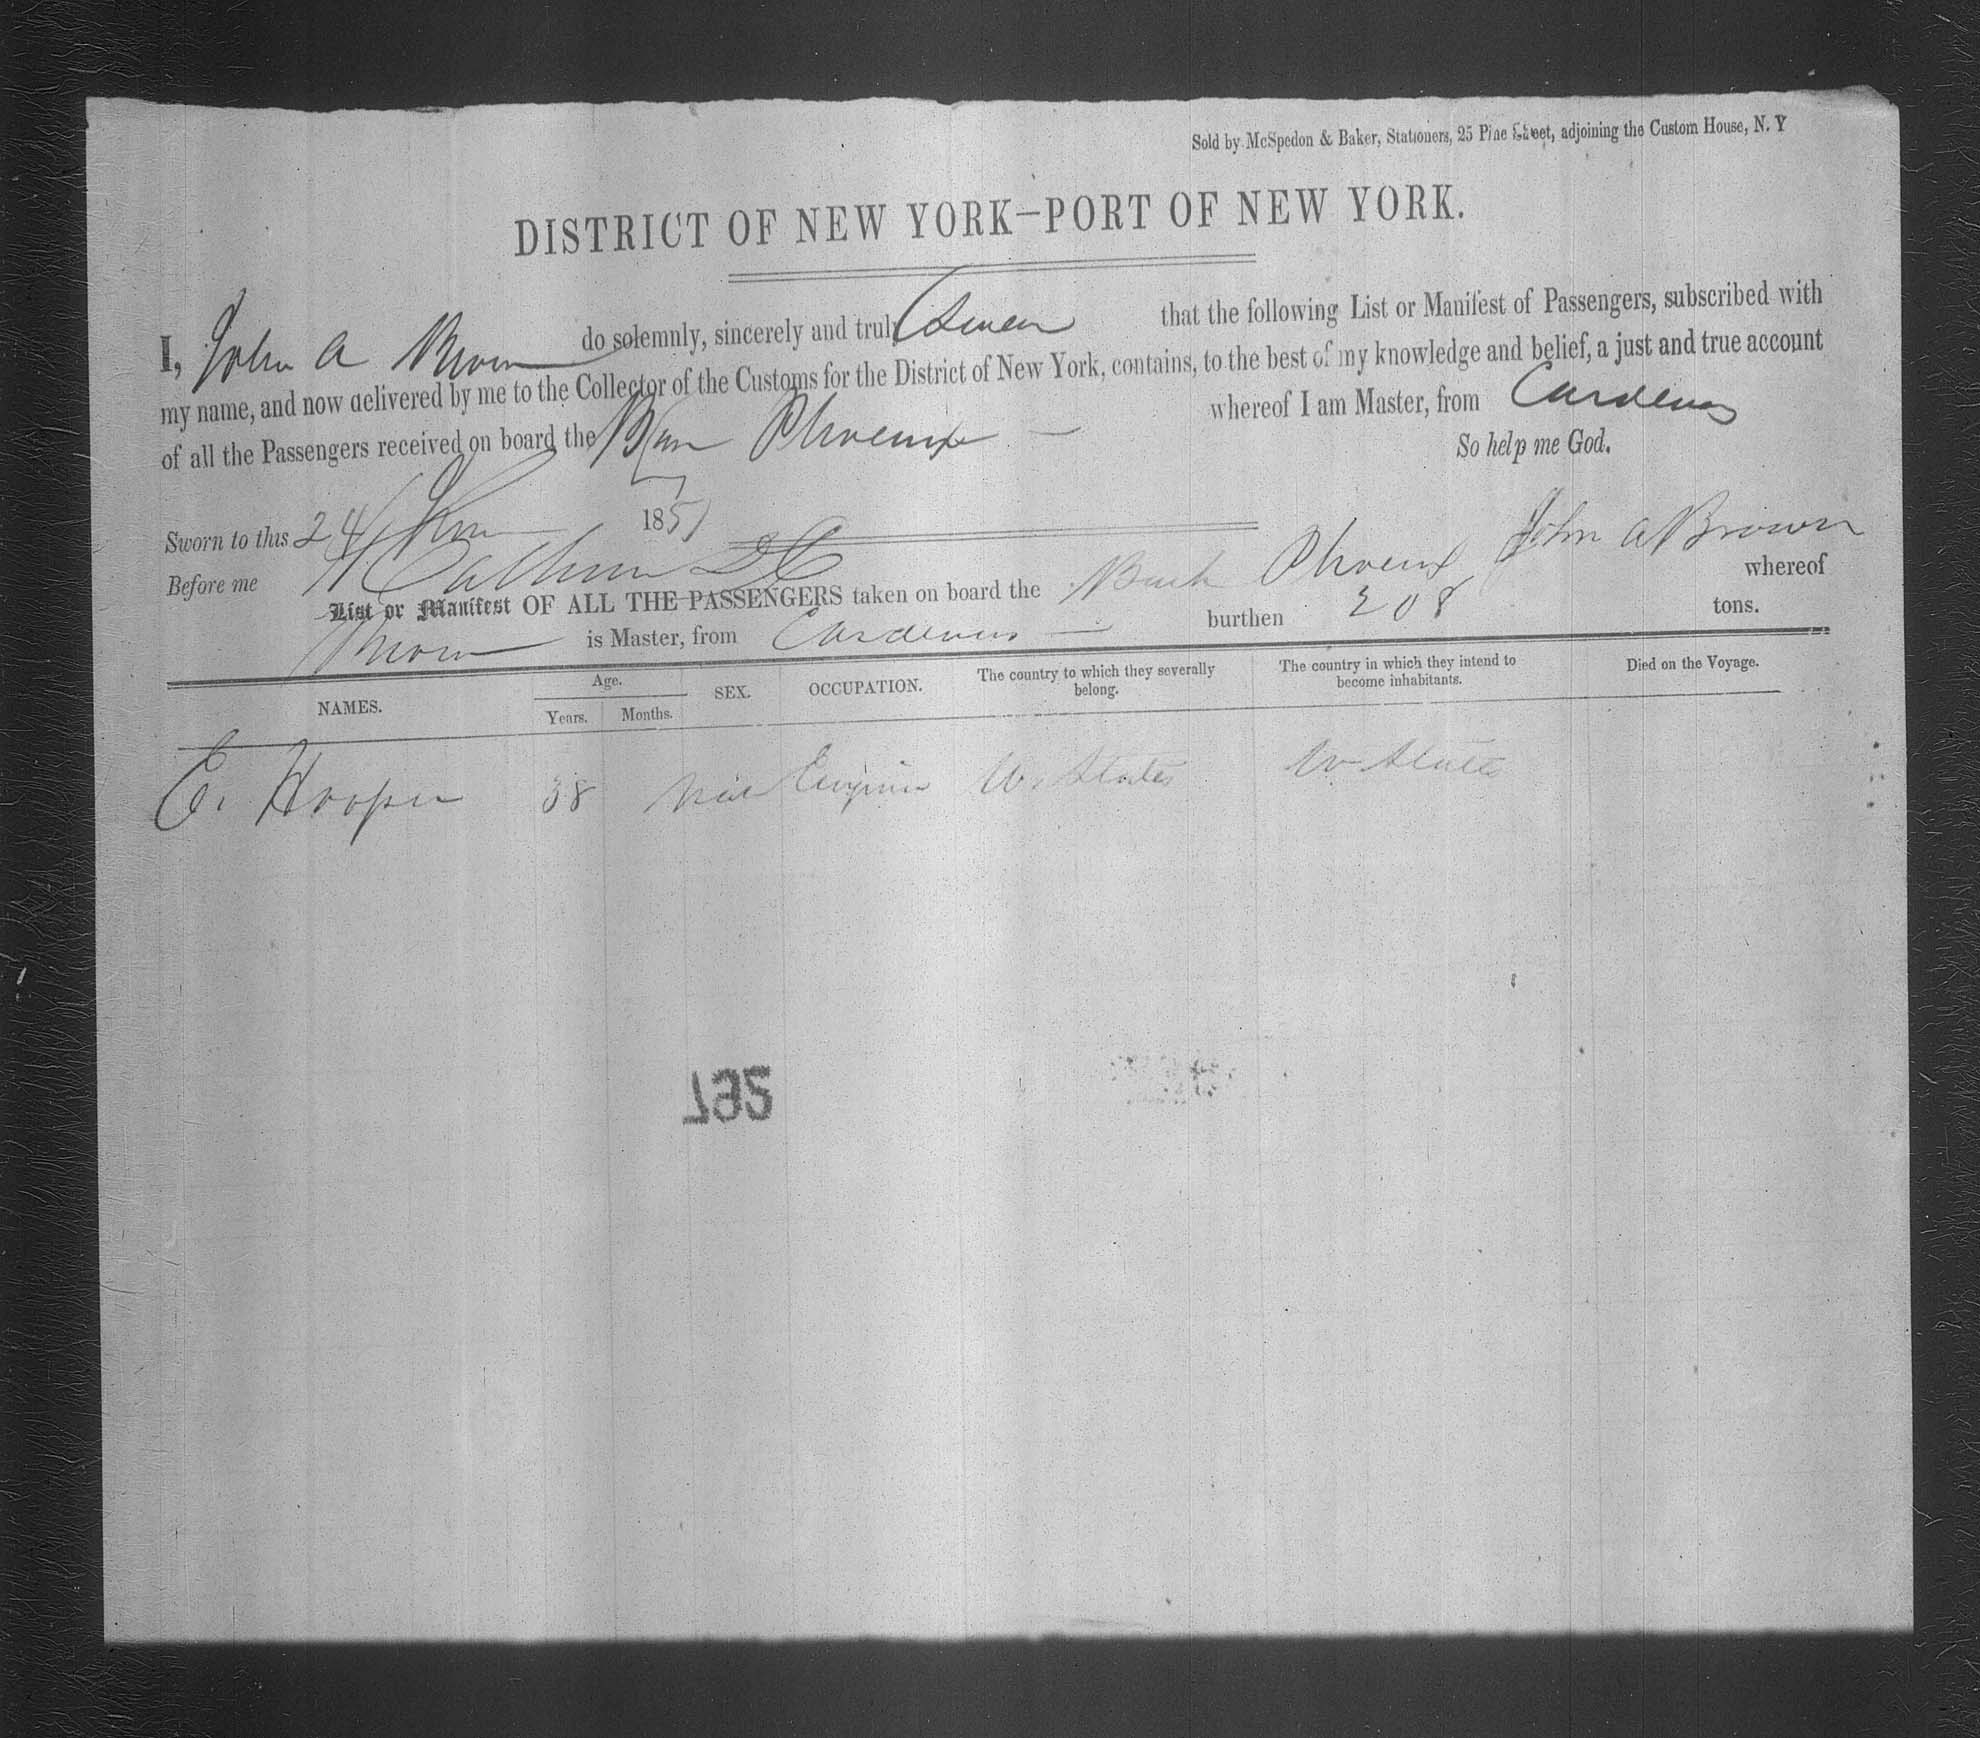 Sold by McSpedon & Baker, Stationers, 25 Pine Street, adjoining the Custom House, N. Y
DISTRICT OF NEW YORK—PORT OF NEW YORK.
I, John A Brown do solemnly, sincerely and truly Swear that the following List or Manifest of Passengers, subscribed with
my name, and now delivered by me to the Collector of the Customs for the District of New York, contains, to the best of my knowledge and belief, a just and true account
of all the Passengers received on board the Phoenix whereof I am Master, from Cardenas
So help me God.
Sworn to this 24 1851
John A Brown
Before me Calhoun
List or Manifest OF ALL THE PASSENGERS taken on board the Bark Phoenix whereof
Brown is Master, from Cardenas burthen 208 tons.
NAMES. Age. Years. Months. SEX. OCCUPATION. The country to which they severally belong. The country in which they intend to become inhabitants. Died on the Voyage.
E. Hooper 38 Male U. States U States
792